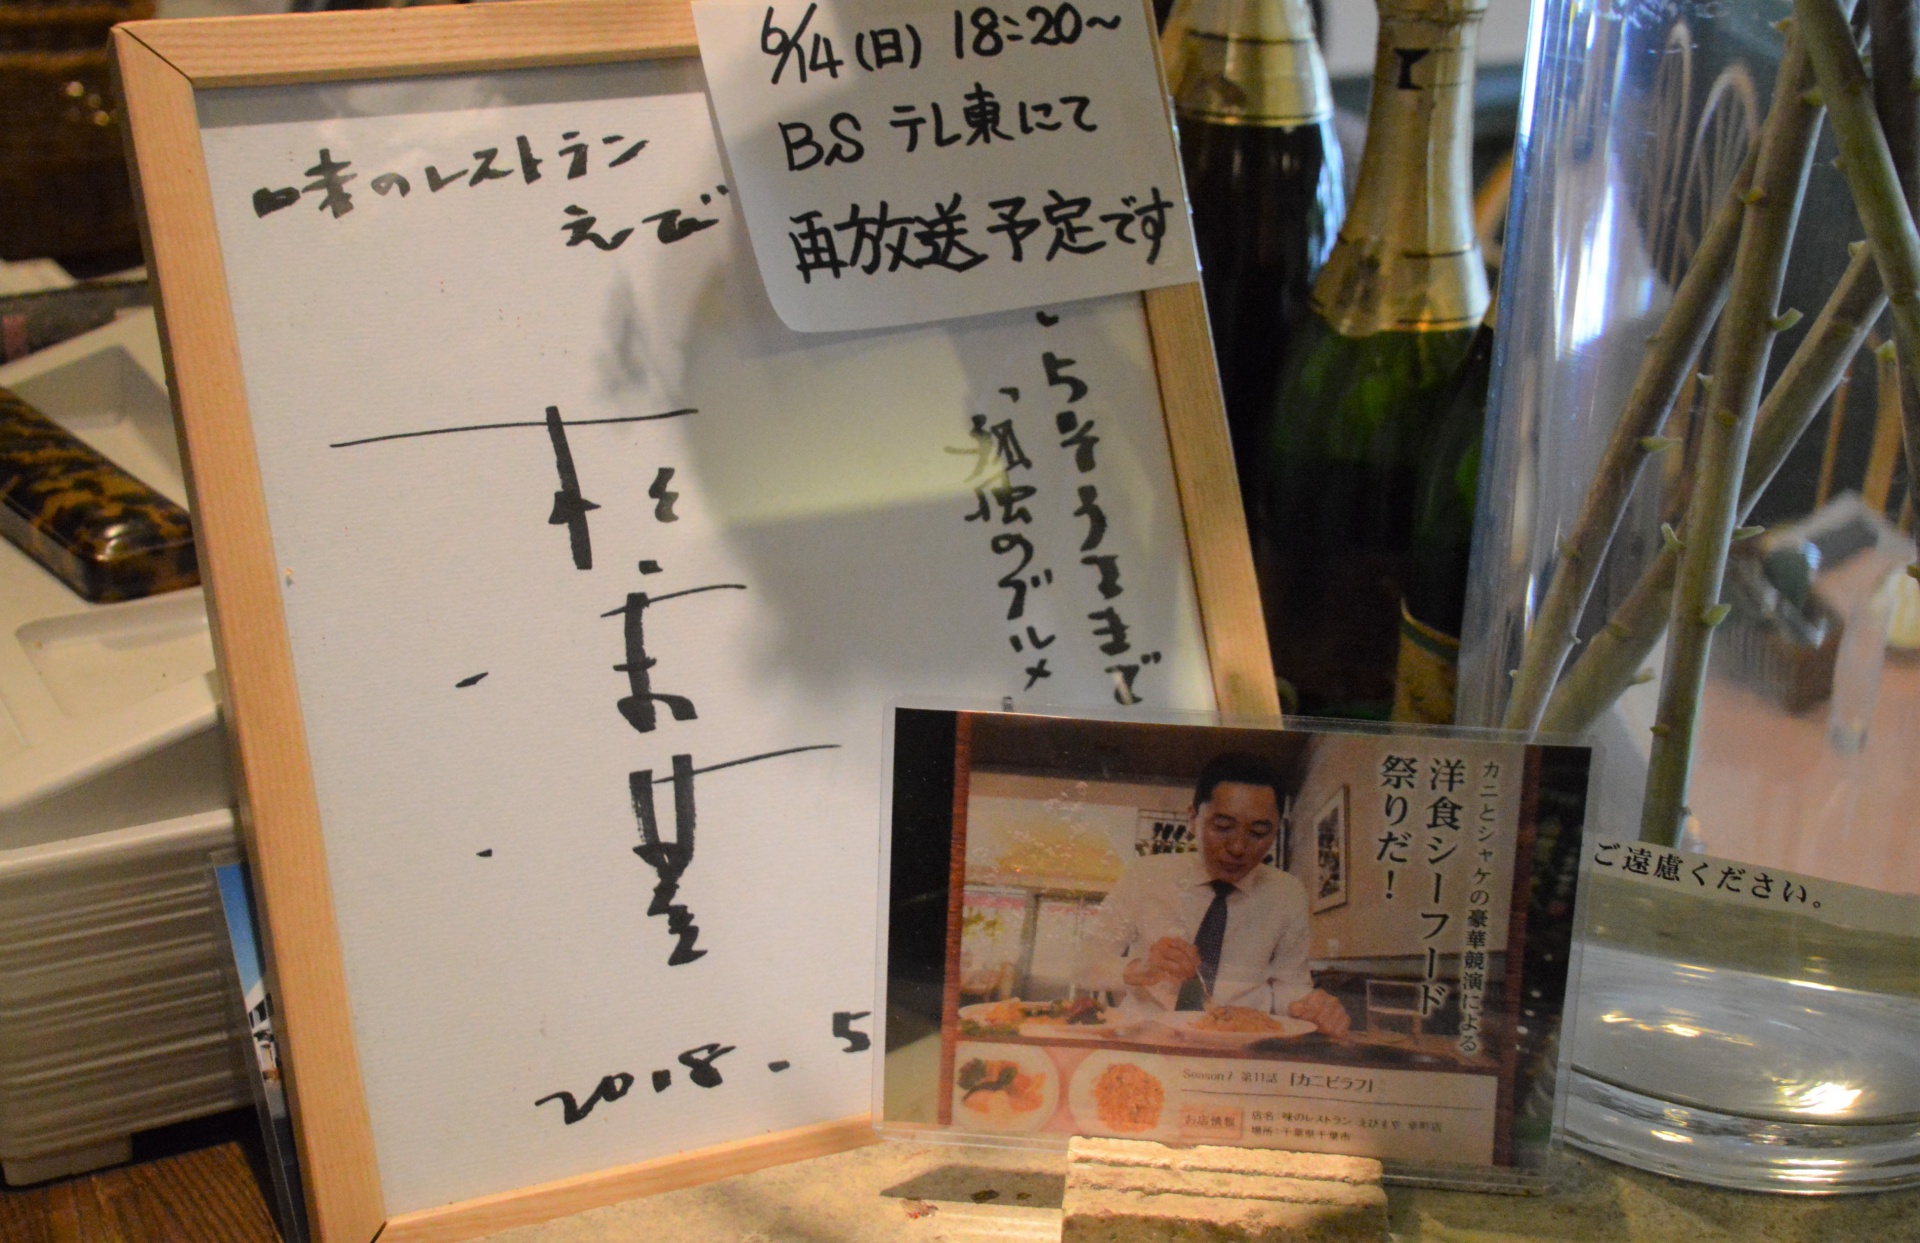 6/14(日) 18:20~
BS テレ東にて
再放送予定です
味のレストラン
えび
ごちそうさまで
「孤独のグルメ
2018.5
カニとシャケの豪華競演による
洋食シーフード
祭りだ!
Season7 第11話 「カニピラフ」
お店情報
店名:味のレストラン えびすや 幸町店
場所:千葉県千葉市
ご遠慮ください。